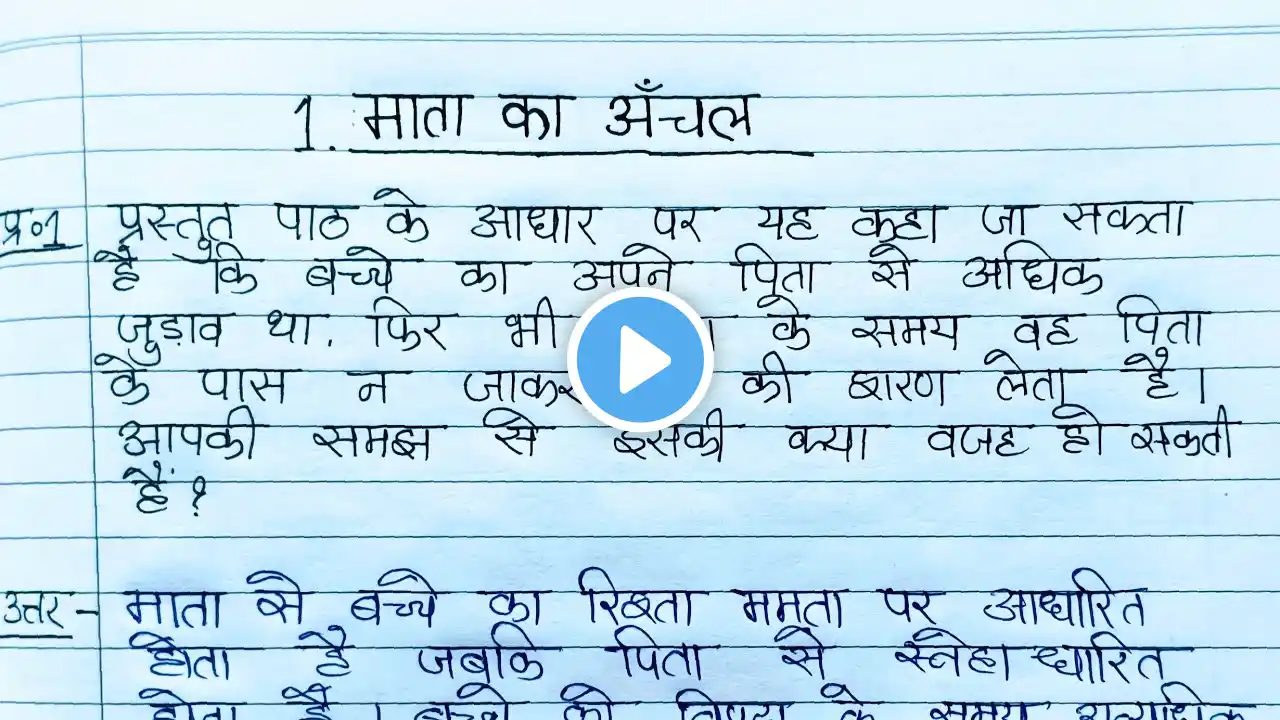 1. माता का अँचल
प्र॰1 प्रस्तुत पाठ के आधार पर यह कहा जा सकता
है कि बच्चे का अपने पिता से अधिक
जुड़ाव था. फिर भी के समय वह पिता
के पास न जाकर की शरण लेता है।
आपकी समझ से इसकी क्या वजह हो सकती
हैं?
उत्तर - माता से बच्चे का रिश्ता ममता पर आधारित
होता है जबकि पिता से स्नेहाधारित
होता है। बच्चे को विपदा के समय अत्याधिक